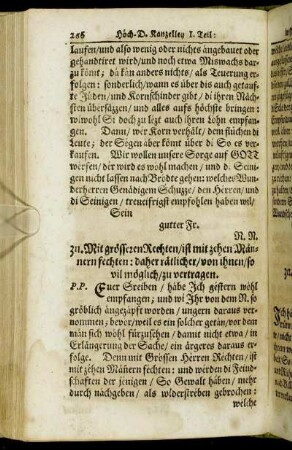 266 Höch-D. Kanzelley I. Teil:
lauffen/und also wenig oder nichts angebauet oder
gehandtiret wird/und noch etwa Miswachs dar-
zu kömt; da kan anders nichts/ als Teuerung er-
folgen: sonderlich/wann es über dis auch getauf-
te Jüden/ und Kornschinder gibt/ di ihren Näch-
sten übersäzzen/ und alles aufs höchste bringen:
wiwohl Si doch zu lezt auch ihren Lohn empfan-
gen. Dann/ wer Korn verhält/ dem fluchen di
Leute; der Segen aber kömt über di So es ver-
kaufen. Wir wollen unsere Sorge auf GOTT
werfen/ der wird es wohl machen/ und d. Seini-
gen nicht lassen nach Brodte gehen: welches Wun-
derherren Genädigem Schuzze/ den Herren/und
di Seinigen/ treueifrigst empfohlen haben wil/
Sein
gutter Fr.
N. N.
zu. Mit grösseren Rechten/ ist mit zehen Män-
nern fechten: daher rätlicher/ von ihnen/ so
vil möglich/ zu vertragen.
P.P. Euer Sreiben/ habe Ich gestern wohl
empfangen; und wi Ihr von dem N. so
gröblich angezäpft worden/ ungern daraus ver-
nommen; bevor/weil es ein solcher getan/vor dem
man sich wohl fürzusehen/ damit nicht etwa/ in
Erlängerung der Sache/ ein ärgeres daraus er-
folge. Denn mit Grössen Herren Rechten/ ist
mit zehen Mäñern fechten: und würden di Feind-
schaften der jenigen/ So Gewalt häben/ mehr
durch nachgeben/ als widerströben gebrochen:
welche